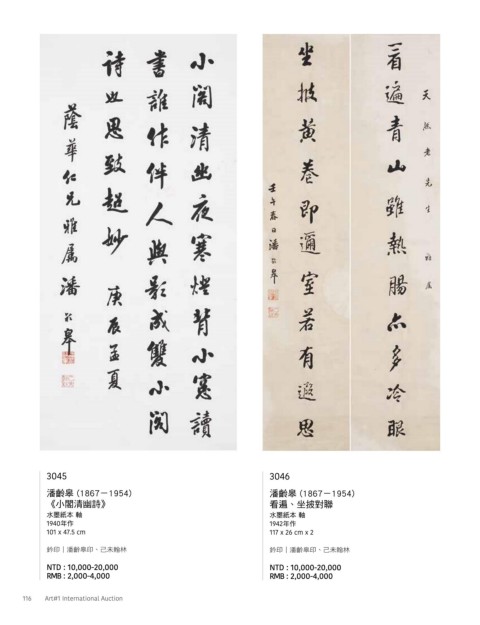 小閣清幽夜寒燈背小窻讀
書誰作伴人與影成雙小閣
詩也思致超妙 庚辰孟夏
蔭華仁兄雅属 潘齡皋
天然老先生 属
看遍青山雖熱腸亦多冷眼
坐披黄卷即邇室若有遐思
壬午春日潘齡皋
3045
潘齡皋 (1867－1954)
《小閣清幽詩》
水墨紙本 軸
1940年作
101 x 47.5 cm
鈐印｜潘齡皋印、己未翰林
NTD : 10,000-20,000
RMB : 2,000-4,000
3046
潘齡皋 (1867－1954)
看遍、坐披對聯
水墨紙本 軸
1942年作
117 x 26 cm x 2
鈐印｜潘齡皋印、己未翰林
NTD : 10,000-20,000
RMB : 2,000-4,000
116 Art#1 International Auction